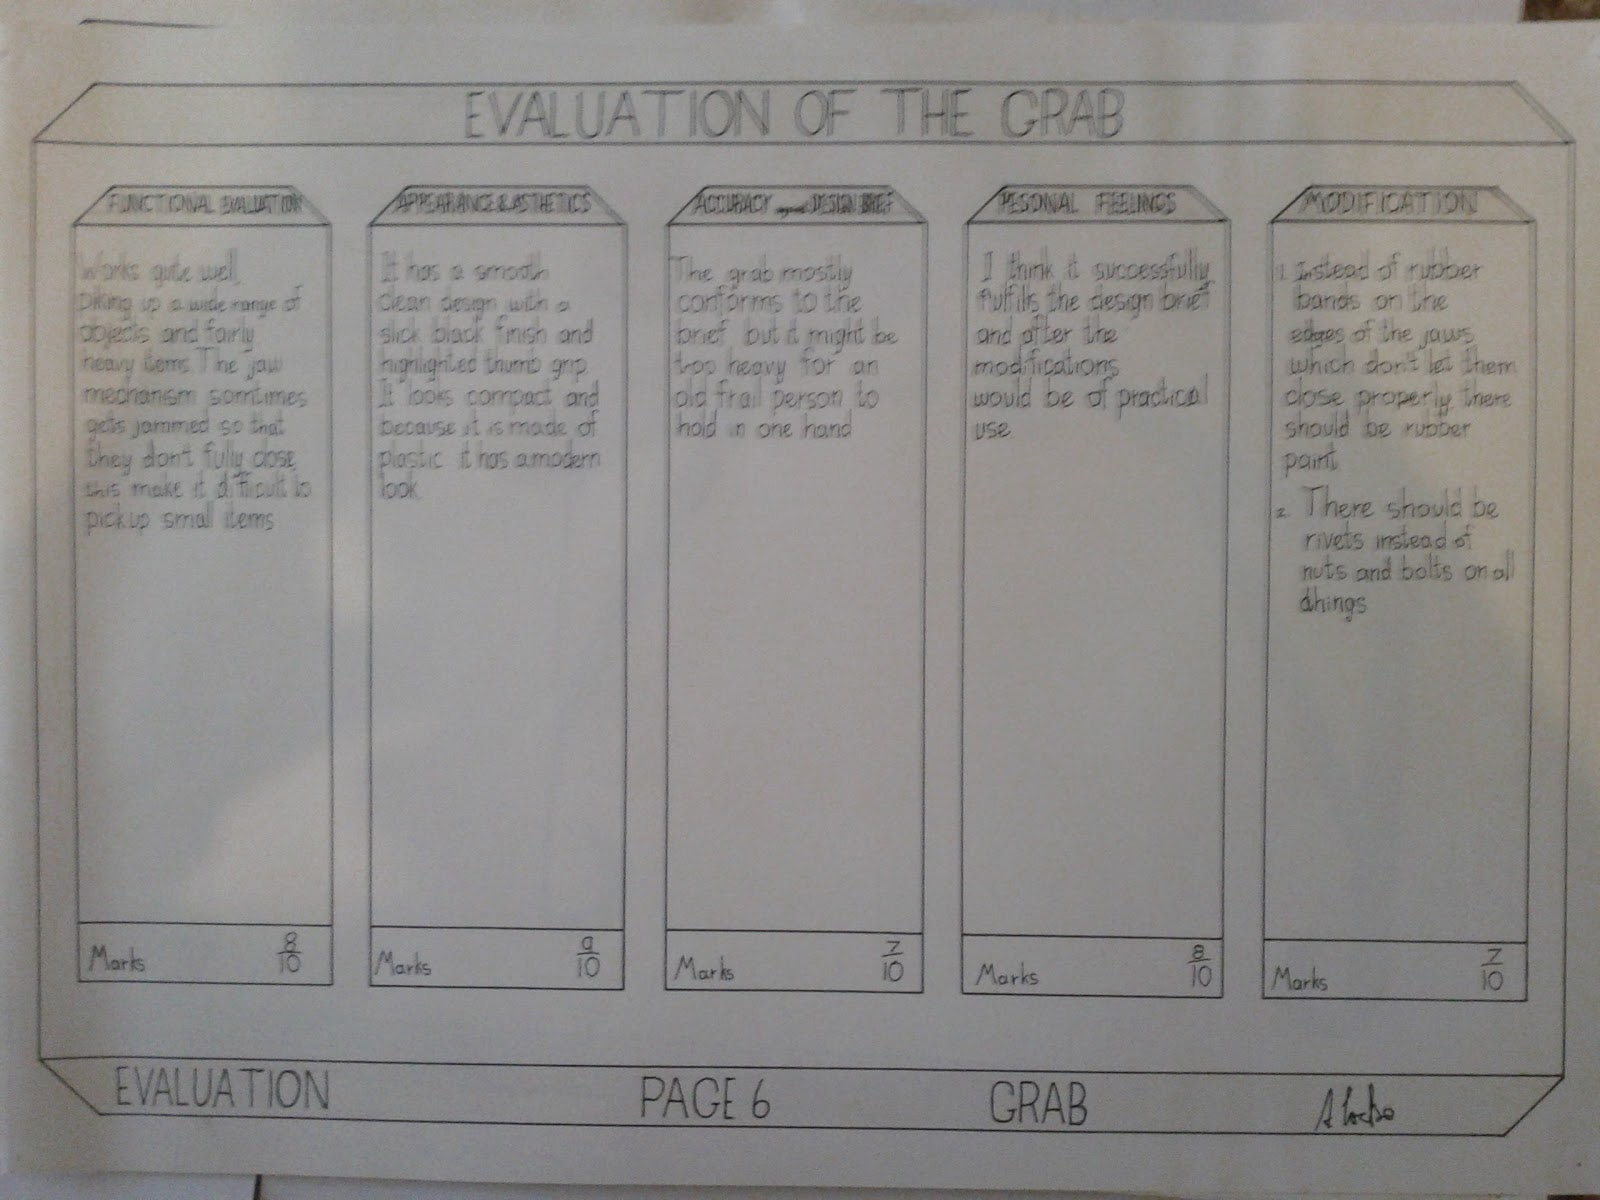 EVALUATION OF THE GRAB
FUNCTIONAL EVALUATION
Works quite well,
piking up a wide range of
objects and fairly
heavy items. The jaw
mechanism somtimes
gets jammed so that
they don't fully close,
this make it difficult to
pick up small items
Marks 8/10
APPEARANCE & ASTHETICS
It has a smooth
clean design with a
slick black finish and
highlighted thumb grip.
It looks compact and
because it is made of
plastic it has a modern
look.
Marks 9/10
ACCURACY DESIGN BRIEF
The grab mostly
conforms to the
brief but it might be
too heavy for an
old frail person to
hold in one hand
Marks 7/10
PESONAL FEELINGS
I think it successfully
fulfills the design brief
and after the
modifications
would be of practical
use.
Marks 8/10
MODIFICATION
1. Instead of rubber
bands on the
edges of the jaws
which don't let them
close properly there
should be rubber
paint
2. There should be
rivets instead of
nuts and bolts on all
Marks 7/10
EVALUATION PAGE 6 GRAB